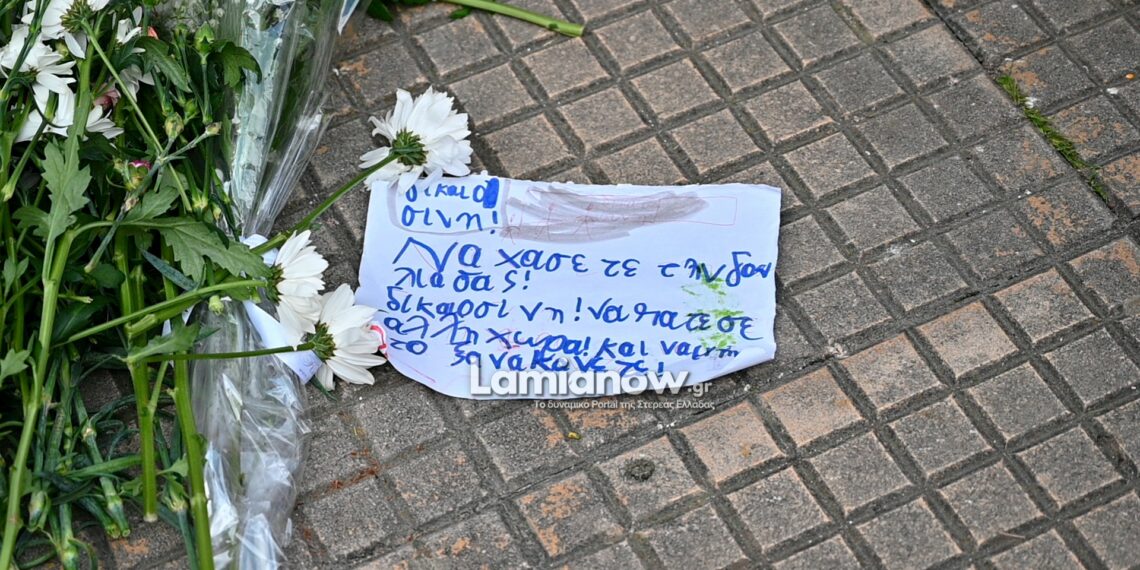 δικαιο
σινη!
Να χασε τε την δου
λια σας!
δικαροσι νη! να πατε σε
αλλη χωρα! και να μη
το ξανακανετε!
Lamianow.gr
Το δυναμικό Portal της Στερεάς Ελλάδας